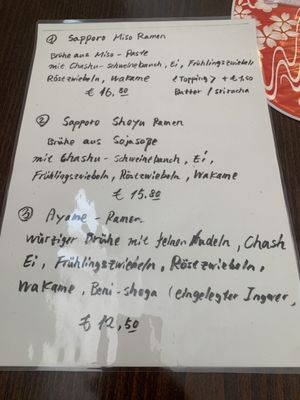 ① Sapporo Miso Ramen
Brühe aus Miso-Paste
mit Chashu-schweinebauch, Ei, Frühlingszwiebeln
Röstzwiebeln, Wakame (Topping) + € 1,50
€ 16,80 Butter / Sriracha
② Sapporo Shoyu Ramen
Brühe aus Sojasoße
mit Chashu-schweinebauch, Ei,
Frühlingszwiebeln, Röstzwiebeln, Wakame
€ 15,80
③ Ayame-Ramen
Würziger Brühe mit feinen Nudeln, Chash
Ei, Frühlingszwiebeln, Röstzwiebeln,
Wakame, Beni-shoga (eingelegter Ingwer,
€ 12,50